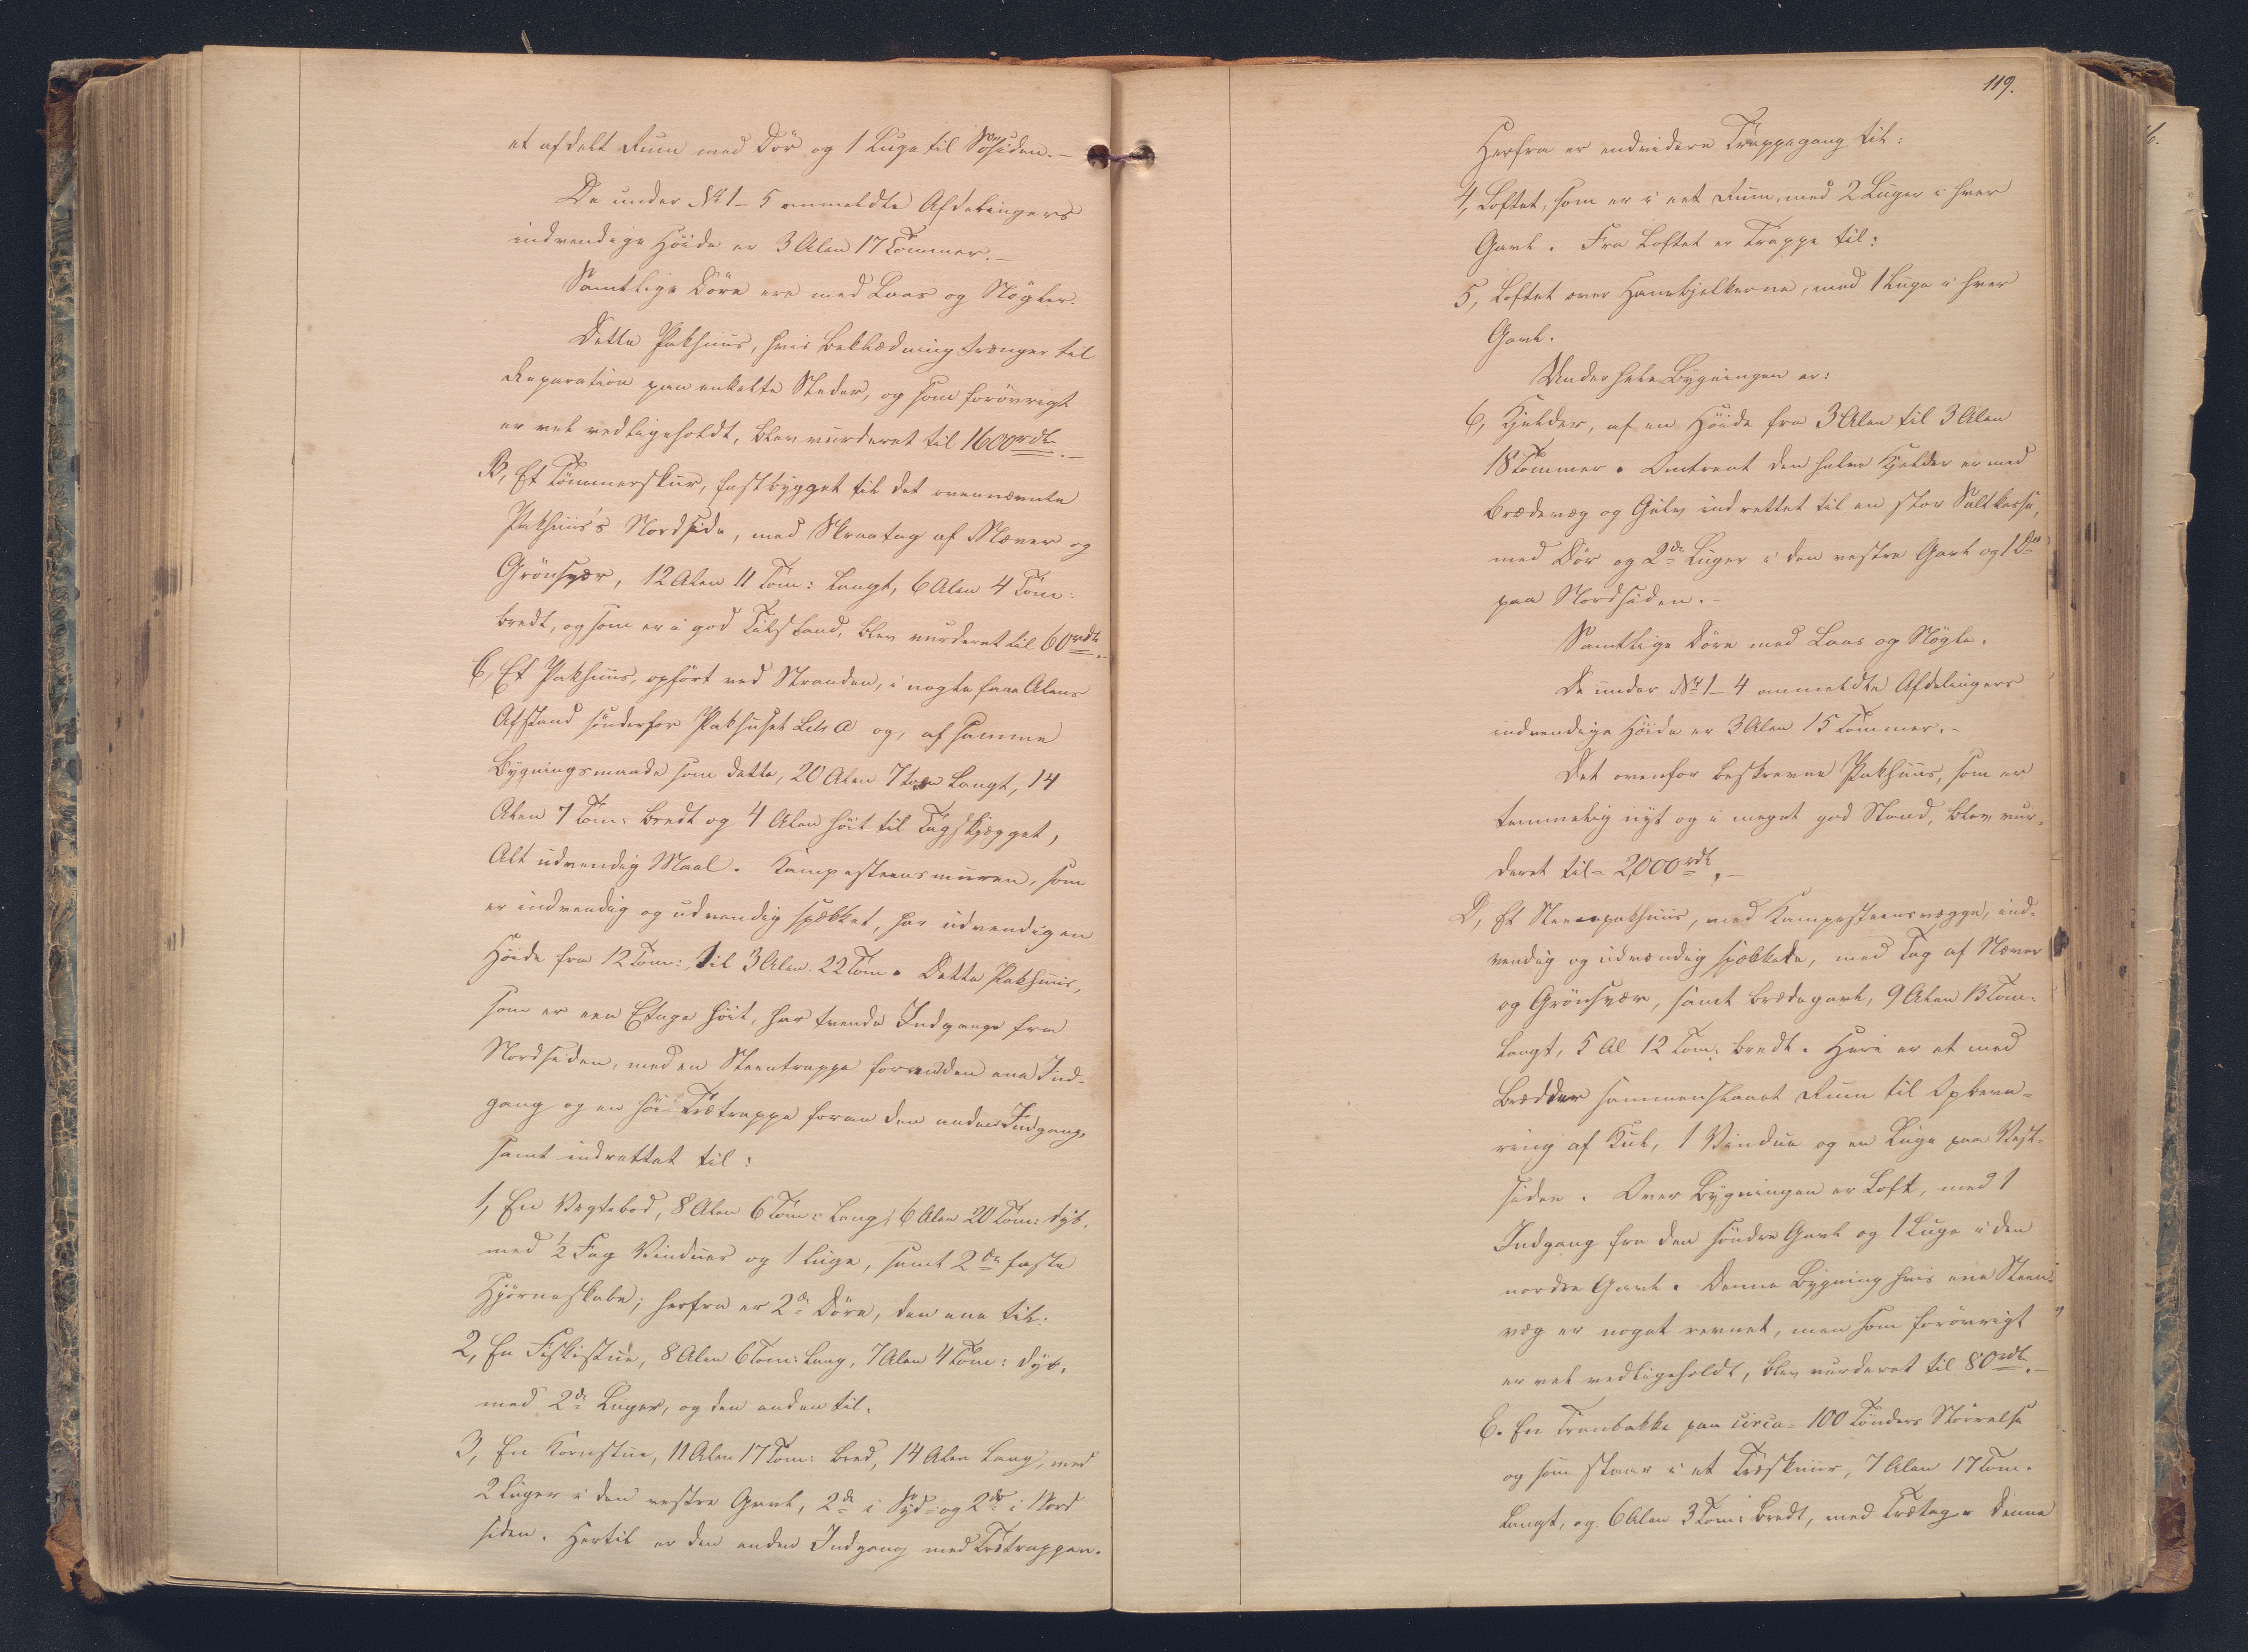 et afdelt Rum med Dør og 1 Luge til Søsiden.–
De under № 1–5 ommeldte Afdelingers
indvendige Høide er 3 Alen 17 Tommer.–
Samtlige Døre ere med Laas og Nøgler.
Dette Pakhuus, hvis Beklædning trænger til
Reparation paa enkelte Steder, og som forøvrigt
er vel vedligeholdt, blev vurderet til 1600 rdl.–
B, Et Tømmerskur, fastbygget til det ovennævnte
Pakhuus's Nordside, med Skraatag af Næver og
Grønsvær, 12 Alen 11 Tom: langt, 6 Alen 4 Tom:
bredt, og som er i god Tilstand, blev vurderet til 60 rdl.–
C, Et Pakhuus, opført ved Stranden, i nogle faae Alens
Afstand sønderfor Pakhuset Litr A og, af samme
Bygningsmaade som dette, 20 Alen 7 tom langt, 14
Alen 7 Tom: bredt og 4 Alen høit til Tagskjægget,
Alt udvendig Maal. Kampesteensmuren, som
er indvendig og udvendig spækket, har udvendig en
Høide fra 12 Tom: til 3 Alen 22 Tom. Dette Pakhuus,
som er een Etage høit, har tvende Indgange fra
Nordsiden, med en Steentrappe foran den ene Ind-
gang og en høi Trætrappe foran den anden Indgang,
samt indrettet til:
1, En Vegtebod, 8 Alen 6 Tom: lang, 6 Alen 20 Tom: dyb,
med ½ Fag Vinduer og 1 Luge, samt 2de faste
Hjørneskabe; herfra er 2de Døre, den ene til:
2, En Fiskistue, 8 Alen 6 Tom: lang, 7 Alen 4 Tom: dyb,
med 2de Luger, og den anden til.
3, En Kornstue, 11 Alen 17 Tom: bred, 14 Alen lang, med
2 Luger i den vestre Gavl, 2de i Syd- og 2de i Nord
siden. Hertil er den anden Indgang med Trætrappen.
119.
Herfra er endvidere Trappegang til:
4, Loftet, som er i eet Rum, med 2 Luger i hver
Gavl. Fra Loftet er Trappe til:
5, Loftet over Hanebjelkerne, med 1 Luge i hver
Gavl.
Under hele Bygningen er:
6, Kjelder, af en Høide fra 3 Alen til 3 Alen
18 Tommer. Omtrent den halve Kjelder er med
Brædevæg og Gulv indrettet til en stor Saltkasse,
med Dør og 2de Luger i den vestre Gavl og 1 Do
paa Nordsiden.–
Samtlige Døre med Laas og Nøgle.
De under № 1–4 ommeldte Afdelingers
indvendige Høide er 3 Alen 15 Tommer.–
Det ovenfor beskrevne Pakhuus, som er
temmelig nyt og i meget god Stand, blev vur-
deret til 2,000 rdl.–
D, Et Steenpakhuus, med Kampesteensvægge, ind-
vendig og udvendig spækkede, med Tag af Næver
og Grønsvær, samt Brædegavl, 9 Alen 13 Tom:
langt, 5 Al 12 Tom: bredt. Heri er et med
Brædder sammenslaaet Rum til Opbeva-
ring af Kul, 1 Vindue og en Luge paa Vest-
siden. Over Bygningen er Loft, med 1
Indgang fra den søndre Gavl og 1 Luge i den
nordre Gavl. Denne Bygning hvis ene Steen-
væg er noget revnet, men som forøvrigt
er vel vedligeholdt, blev vurderet til 80 rdl.–
E. En Tranbakke paa circa 100 Tønders Størrelse
og som staar i et Træskuur, 7 Alen 17 Tom.
langt, og 6 Alen 3 Tom: bredt, med Trætag. Denne